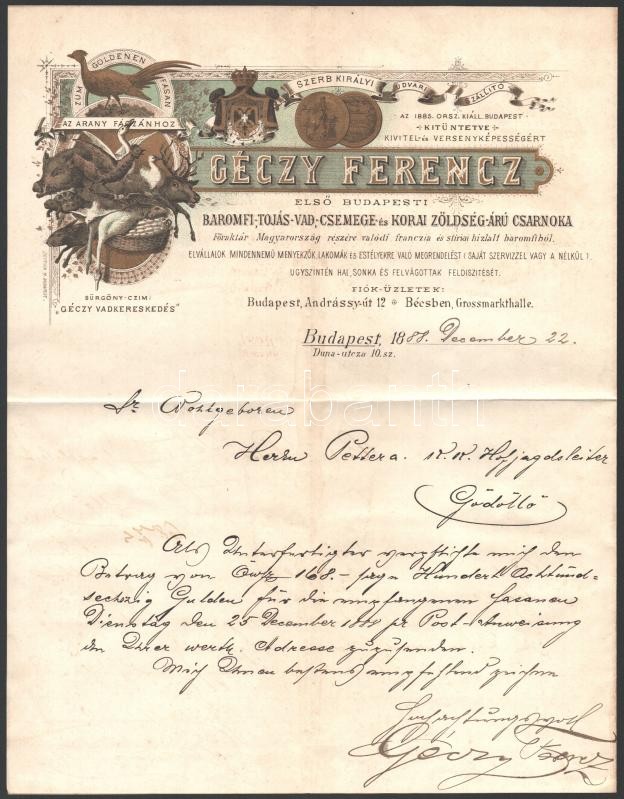 ZUM GOLDENEN FASAN
AZ ARANY FÁCZÁNHOZ
SZERB KIRÁLYI UDVARI SZÁLLITÓ
AZ 1885. ORSZ. KIÁLL. BUDAPEST
KITÜNTETVE
KIVITEL- és VERSENYKÉPESSÉGÉRT
GÉCZY FERENCZ
ELSŐ BUDAPESTI
BAROMFI-, TOJÁS-, VAD-, CSEMEGE- és KORAI ZÖLDSÉG-ÁRÚ CSARNOKA
Főraktár Magyarország részére valódi franczia és stíriai hizlalt baromfiból.
ELVÁLLALOK MINDENNEMŰ MENYEKZŐK, LAKOMÁK ÉS ESTÉLYEKRE VALÓ MEGRENDELÉST (SAJÁT SZERVIZZEL VAGY A NÉLKÜL),
UGYSZINTÉN HAL, SONKA ÉS FELVÁGOTTAK FELDISZITÉSÉT.
FIÓK-ÜZLETEK:
Budapest, Andrássy-út 12 Bécsben, Grossmarkthalle.
SÜRGÖNY-CZIM:
"GÉCZY VADKERESKEDÉS"
Budapest, 1888. December 22.
Duna-utcza 10. sz.
Sr Wohlgeboren
Herrn Pettera. K. K. Hofjagdsleiter
Gödöllő
Als Unterfertigter verpflichte mich den
Betrag von Öwfl 168.- sage Hundert Achtund-
sechzig Gulden für die empfangenen Fasanen
Dienstag den 25 December 1888 pr Post-Anweisung
an Ihrer werth. Adresse zuzusenden.
Mich Ihnen bestens empfehlend zeichne
Hochachtungsvoll
Géczy Ferencz
darabanth